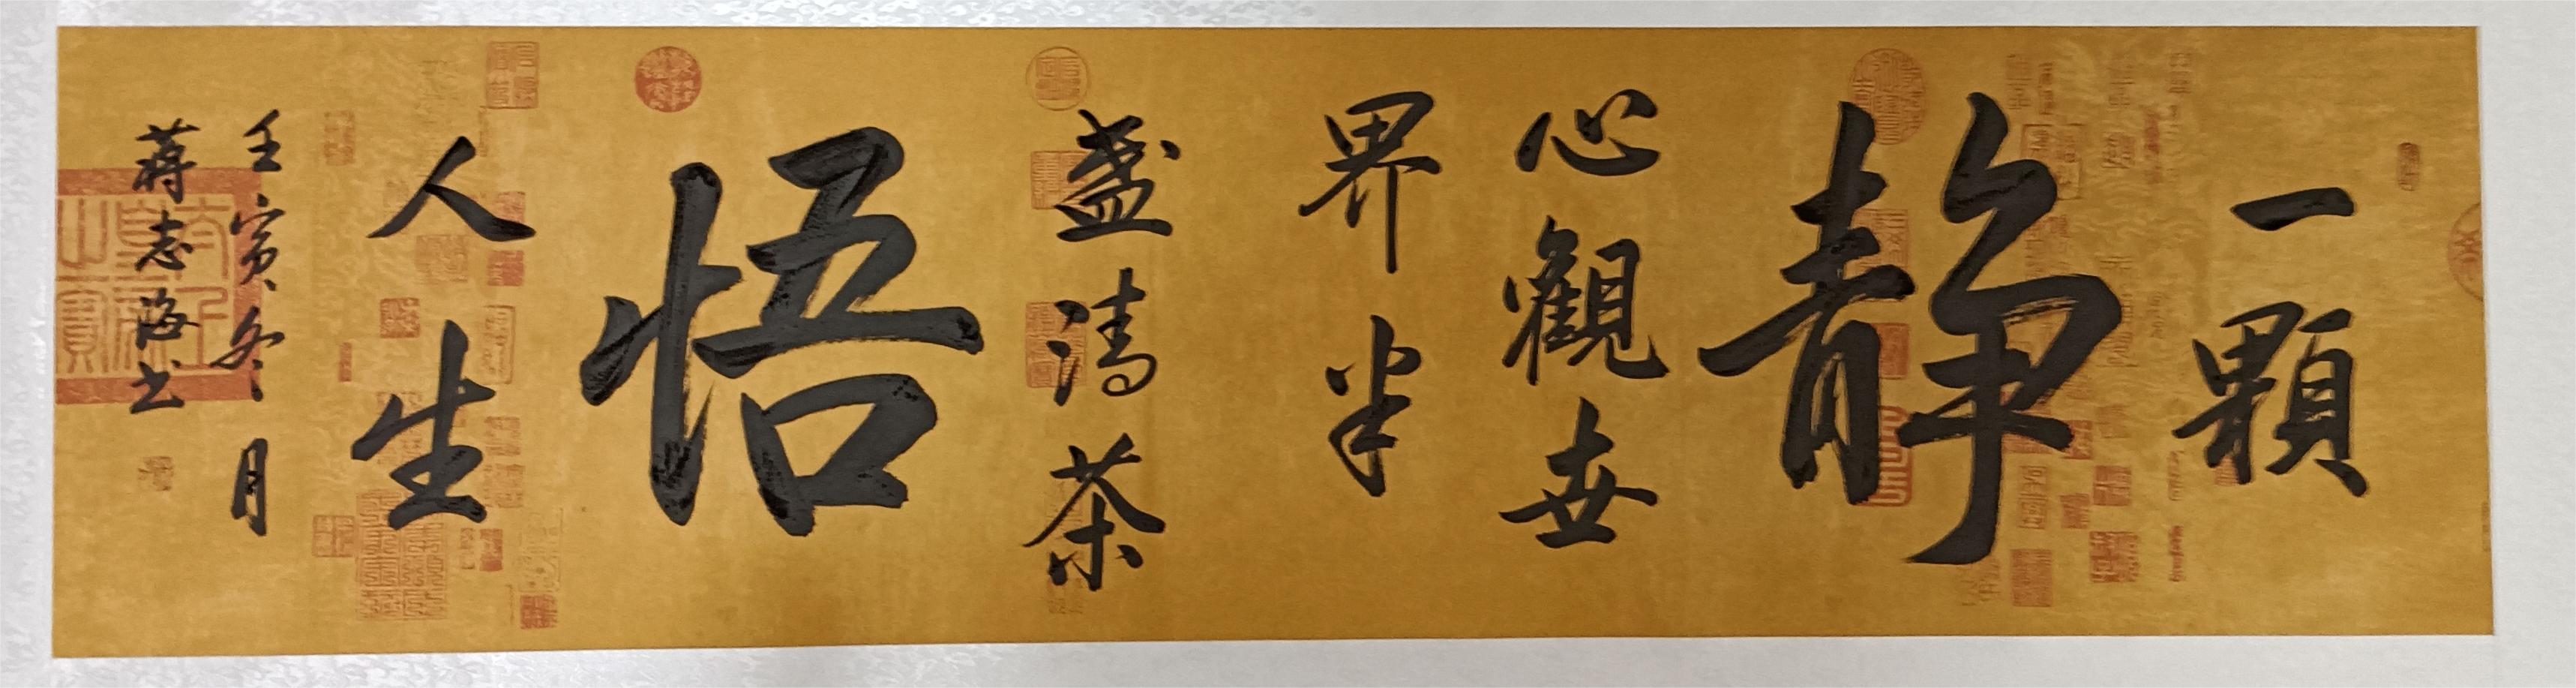 一顆
靜
心觀世
界半
盞清茶
悟
人生
壬寅冬月
蔣志海书